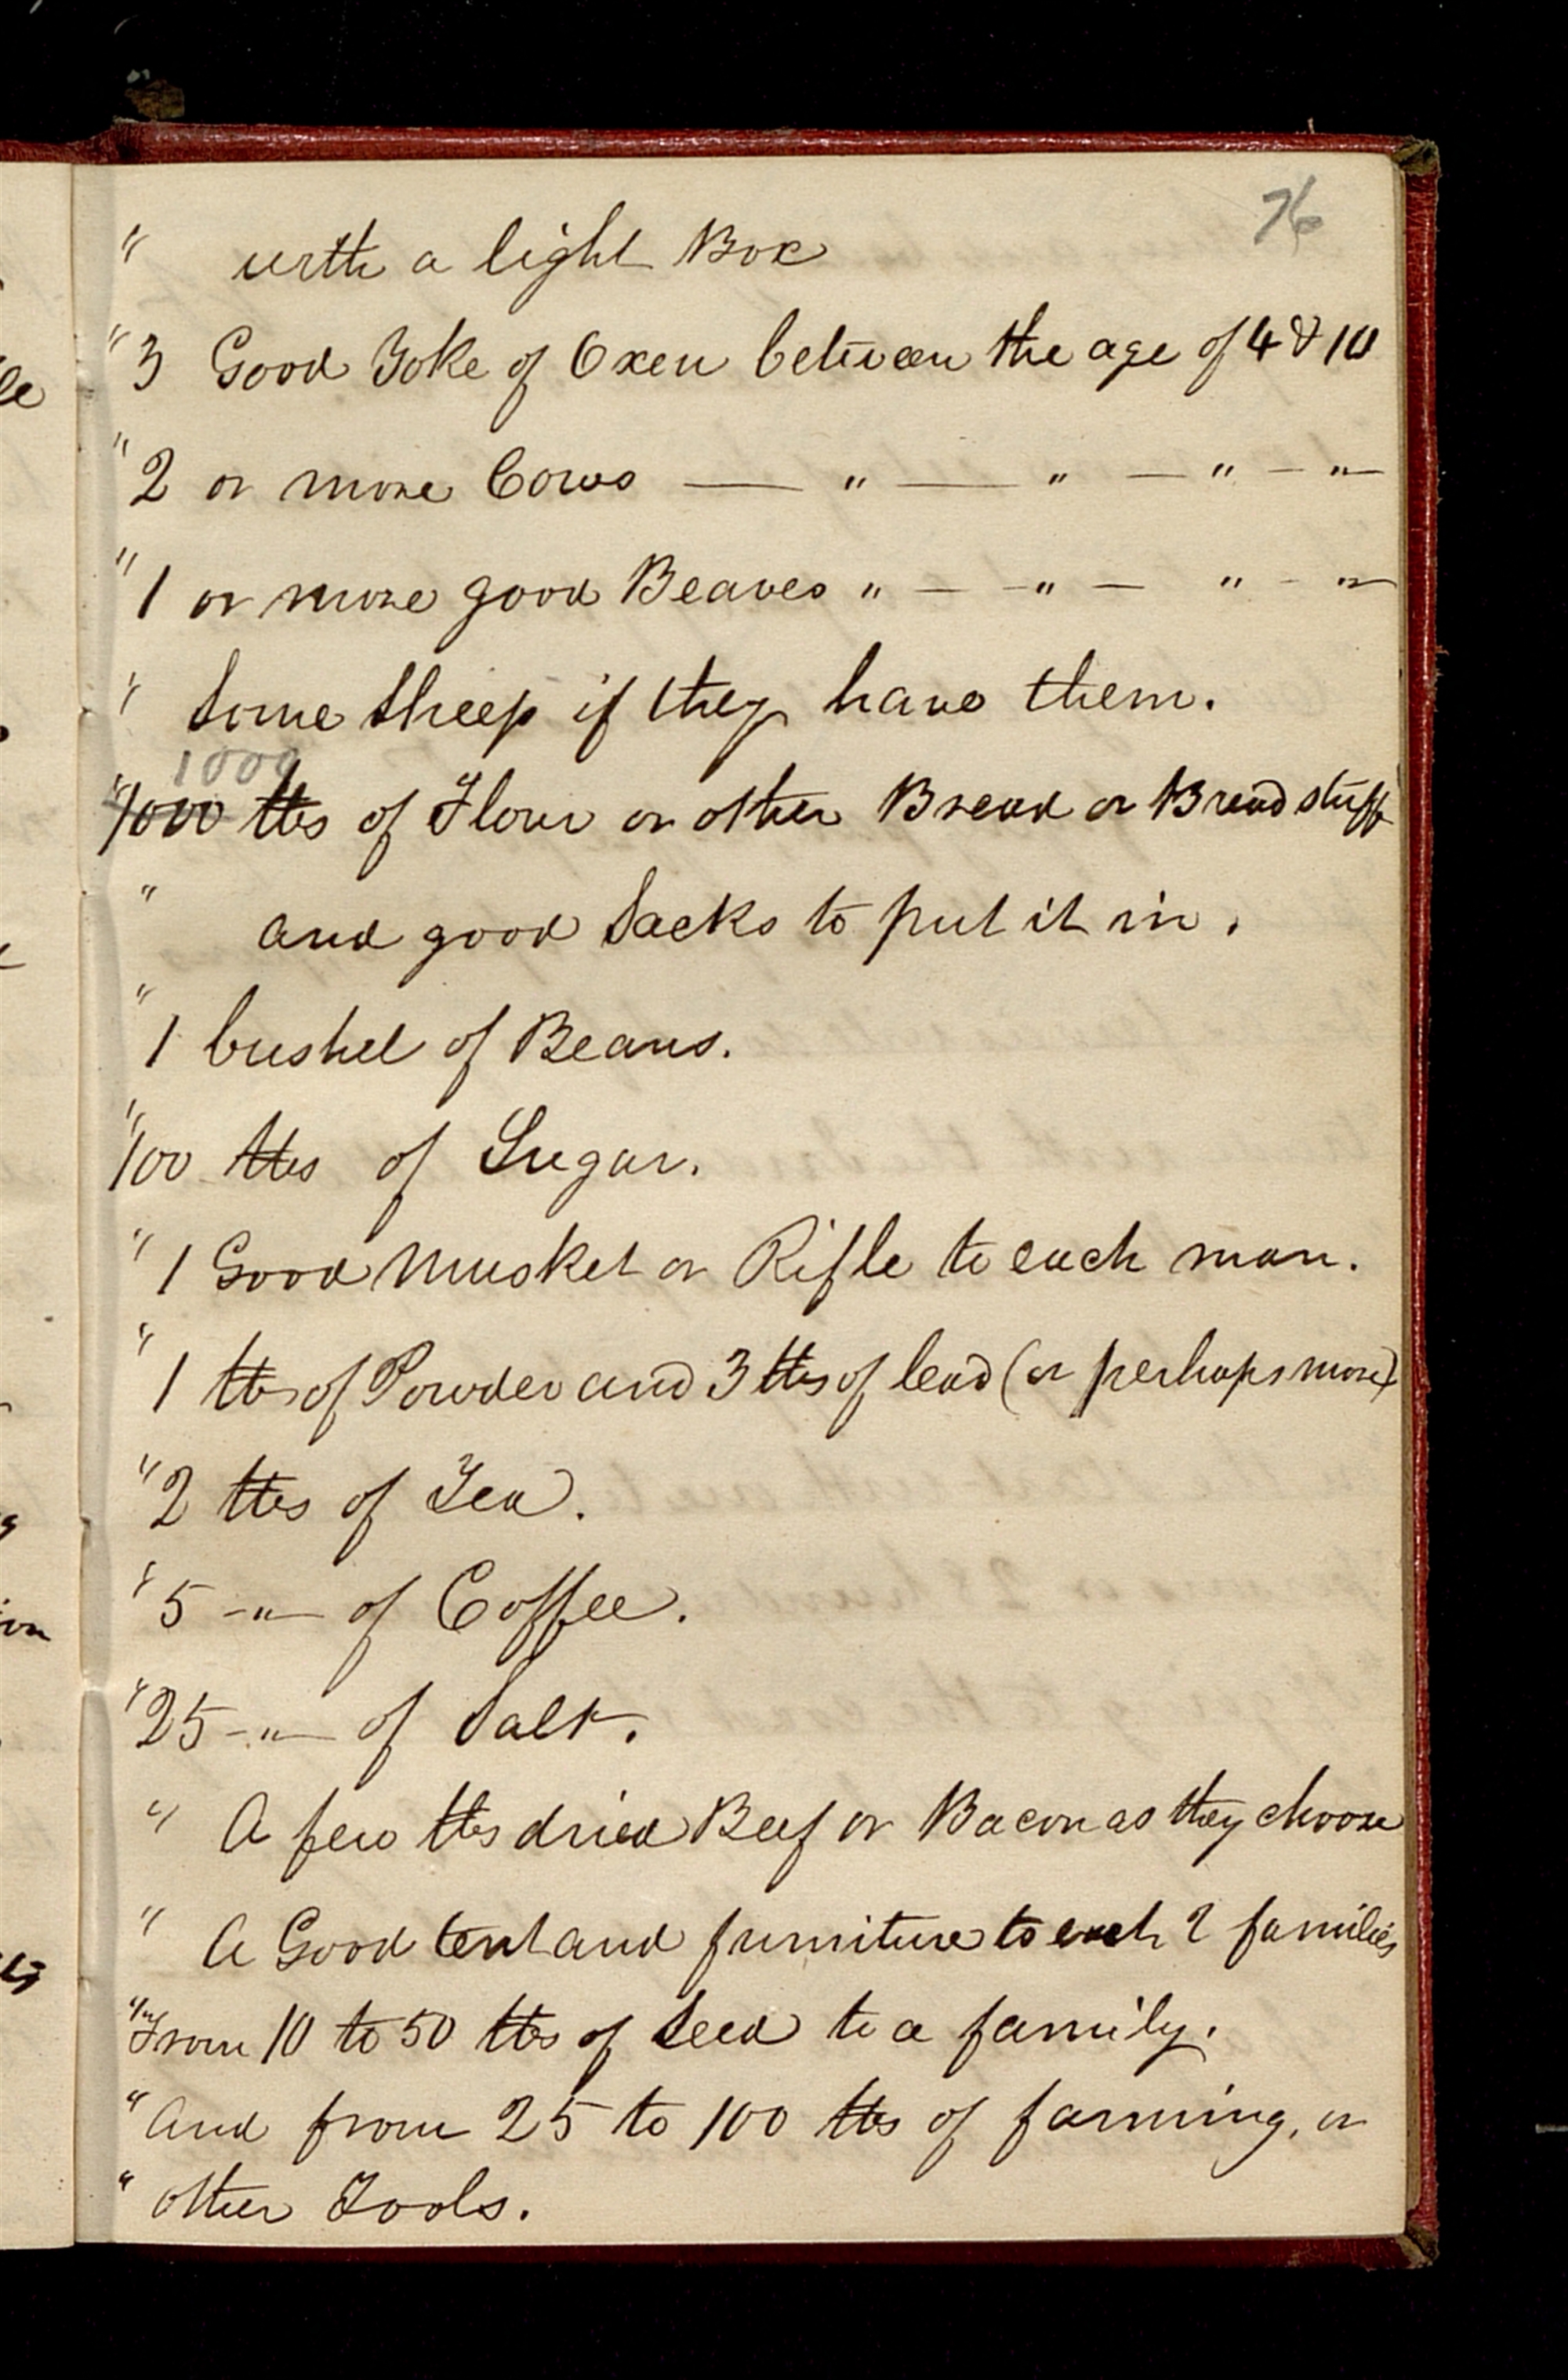 76
" with a light Box
" 3 Good Yoke of Oxen between the age of 4 & 10
" 2 or more Cows — " — " — " — " —
" 1 or more good Beaves " — " — " - " —
" Some Sheep if they have them.
1000
" 1000 lbs of Flour or other Bread or Bread stuff
" and good Sacks to put it in.
" 1 bushel of Beans.
" 100 lbs of Sugar.
" 1 Good Musket or Rifle to each man.
" 1 lb of Powder and 3 lbs of lead (or perhaps more)
" 2 lbs of Tea.
" 5 -"- of Coffee.
" 25 -"- of Salt.
" A few lbs dried Beef or Bacon as they choose
" A Good tent and furniture to each 2 families
" From 10 to 50 lbs of Seed to a family.
" And from 25 to 100 lbs of farming, or
" other Tools.